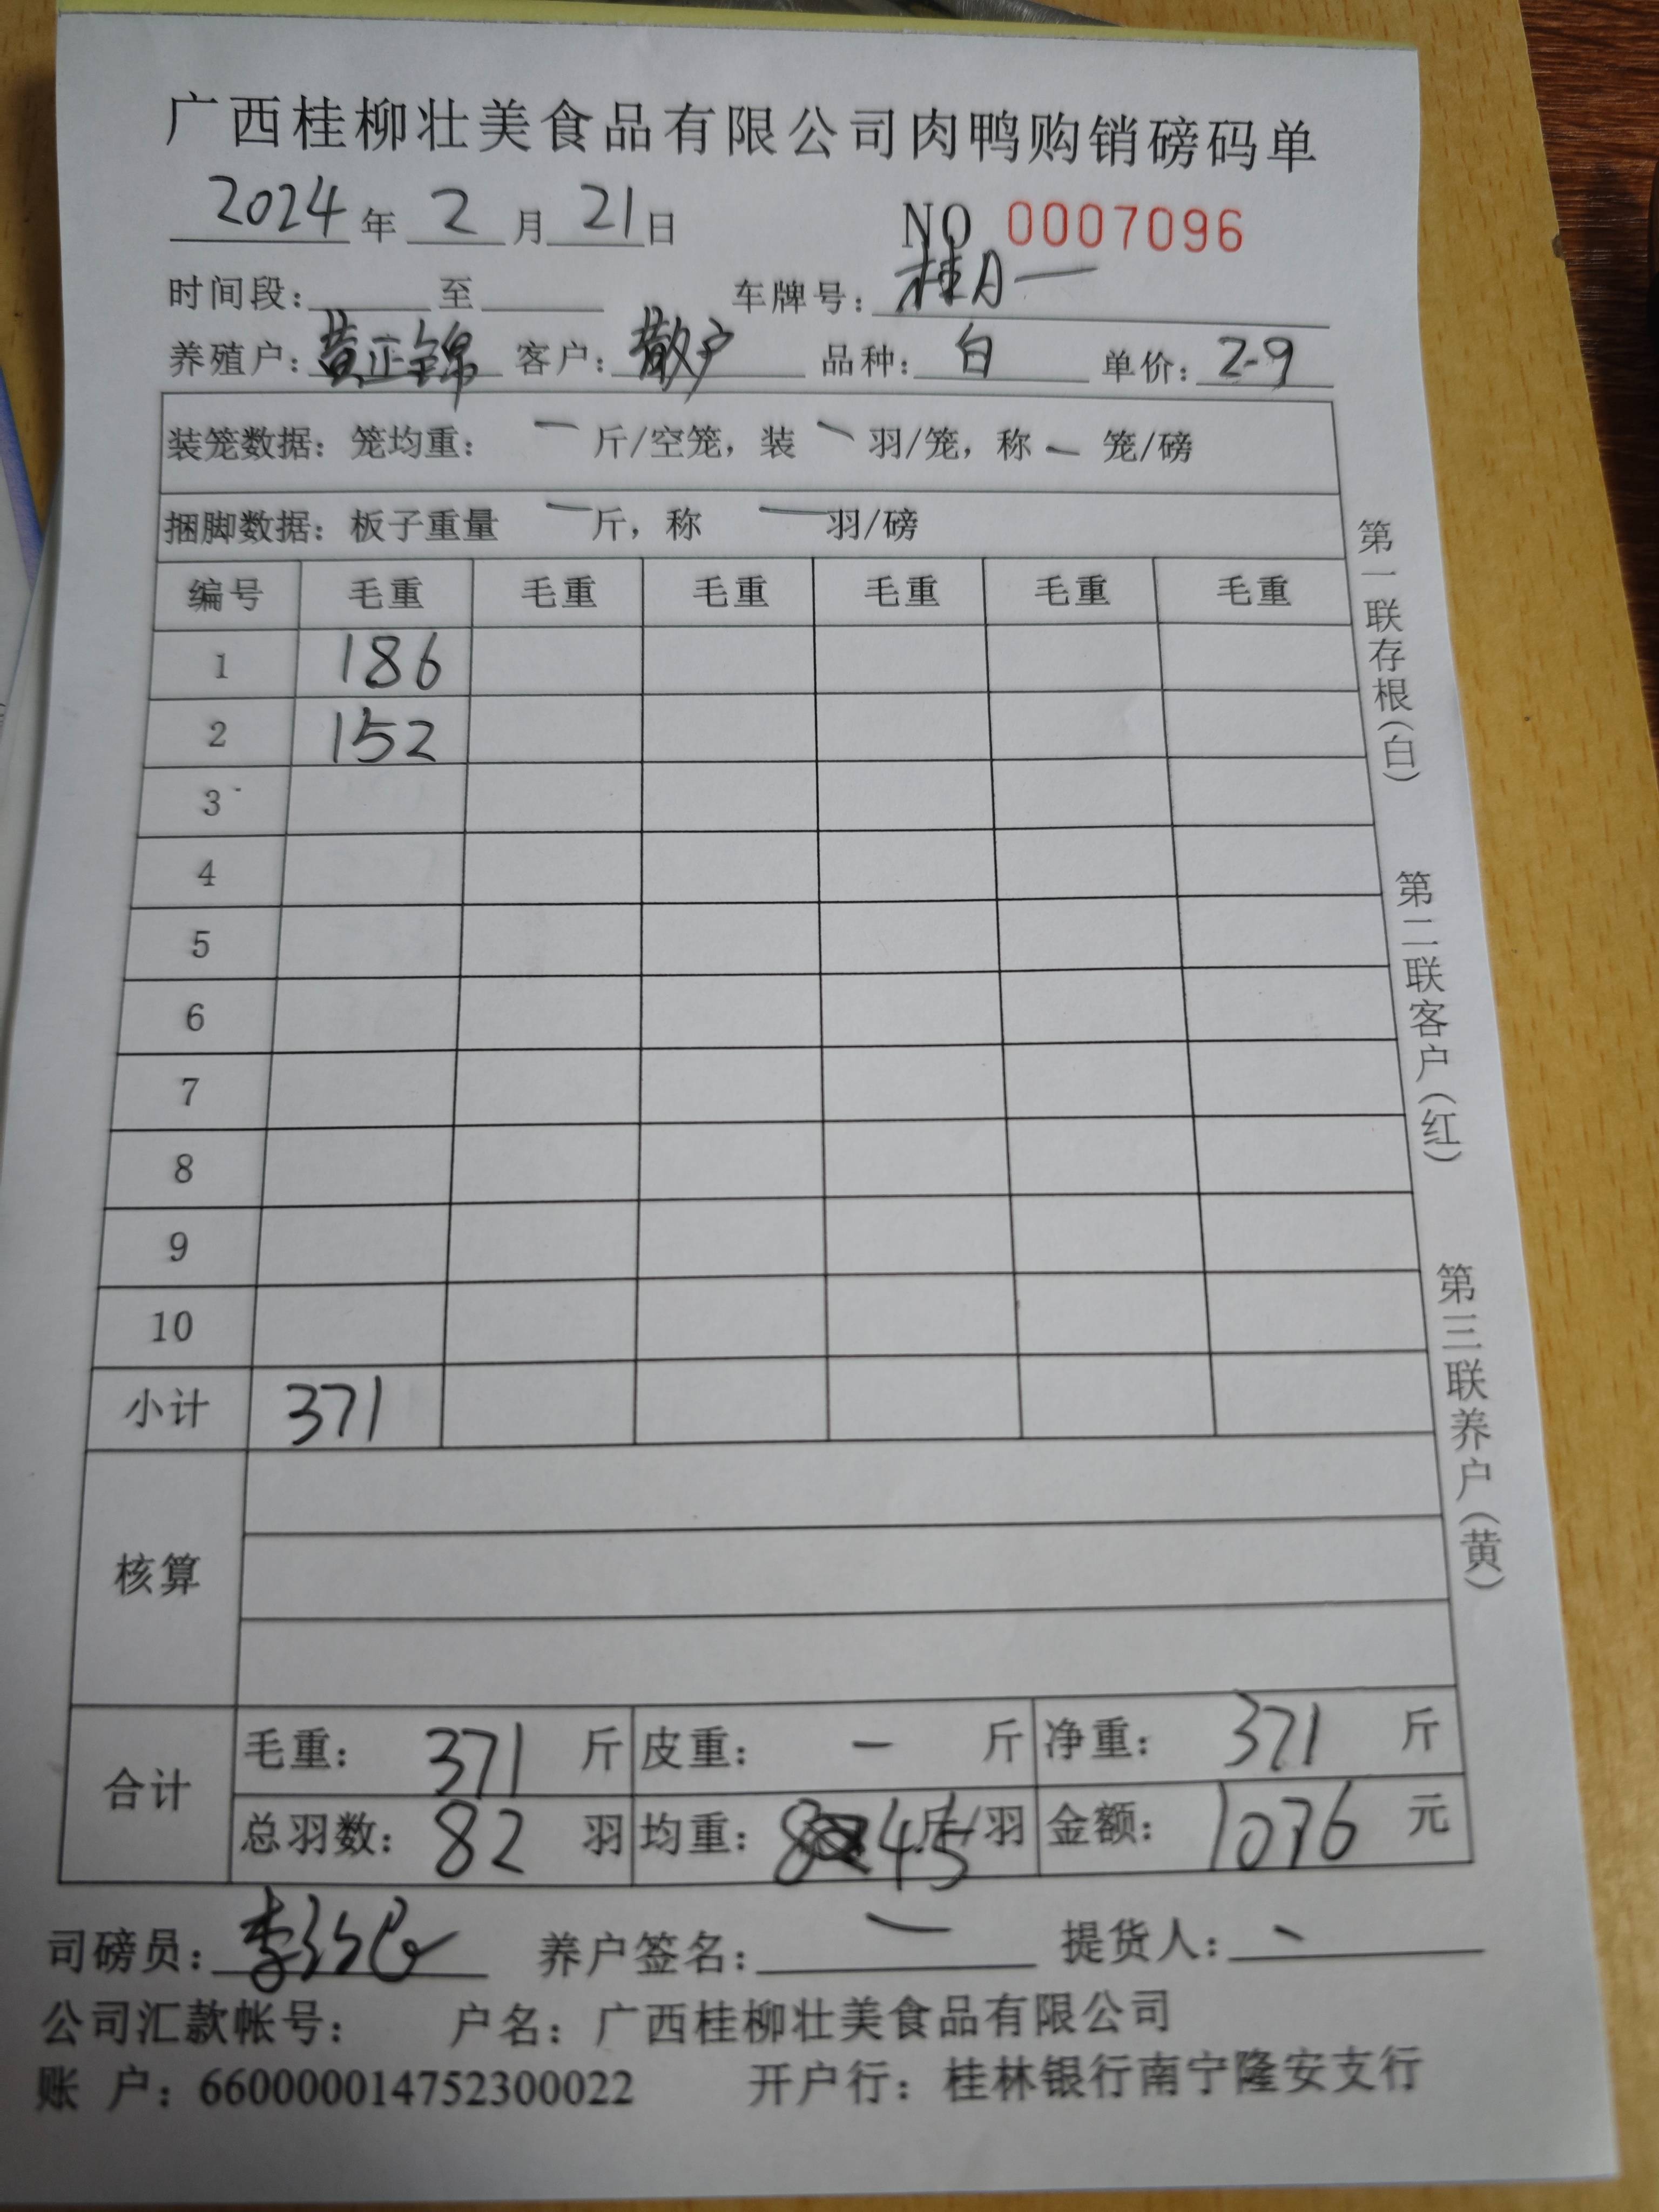 广西桂柳壮美食品有限公司肉鸭购销磅码单
2024 年 2 月 21 日 NO 0007096
时间段: 至 车牌号: 桂A一
养殖户: 黄正锦 客户: 散户 品种: 白 单价: 2.9
装笼数据: 笼均重: 一 斤/空笼, 装 一 羽/笼, 称 一 笼/磅
捆脚数据: 板子重量 一 斤, 称 一 羽/磅
编号 毛重 毛重 毛重 毛重 毛重 毛重
1 186
2 152
3
4
5
6
7
8
9
10
小计 371
核算
合计 毛重: 371 斤 皮重: 一 斤 净重: 371 斤
总羽数: 82 羽 均重: 4.5 斤/羽 金额: 1076 元
司磅员: 李 养户签名: 一 提货人: 一
公司汇款帐号: 户名: 广西桂柳壮美食品有限公司
账 户: 660000014752300022 开户行: 桂林银行南宁隆安支行
第一联存根(白)
第二联客户(红)
第三联养户(黄)